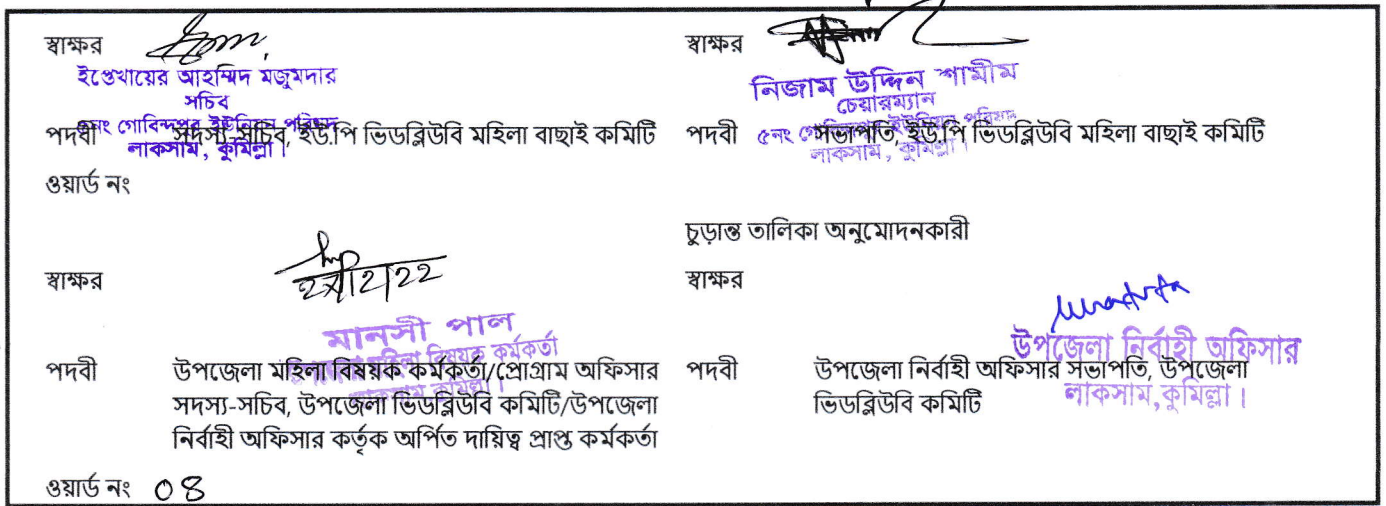 স্বাক্ষর
ইফতেখায়ের আহম্মিদ মজুমদার
সচিব
৫নং গোবিন্দপুর ইউনিয়ন পরিষদ
লাকসাম, কুমিল্লা।
পদবী সদস্য-সচিব, ইউ.পি ভিডব্লিউবি মহিলা বাছাই কমিটি
ওয়ার্ড নং
স্বাক্ষর
নিজাম উদ্দিন শামীম
চেয়ারম্যান
৫নং গোবিন্দপুর ইউনিয়ন পরিষদ
লাকসাম, কুমিল্লা।
পদবী সভাপতি, ইউ.পি ভিডব্লিউবি মহিলা বাছাই কমিটি
চুড়ান্ত তালিকা অনুমোদনকারী
স্বাক্ষর
মানসী পাল
উপজেলা মহিলা বিষয়ক কর্মকর্তা
লাকসাম, কুমিল্লা।
পদবী উপজেলা মহিলা বিষয়ক কর্মকর্তা/প্রোগ্রাম অফিসার
সদস্য-সচিব, উপজেলা ভিডব্লিউবি কমিটি/উপজেলা
নির্বাহী অফিসার কর্তৃক অর্পিত দায়িত্ব প্রাপ্ত কর্মকর্তা
স্বাক্ষর
উপজেলা নির্বাহী অফিসার
লাকসাম, কুমিল্লা।
পদবী উপজেলা নির্বাহী অফিসার সভাপতি, উপজেলা
ভিডব্লিউবি কমিটি
ওয়ার্ড নং ০৪